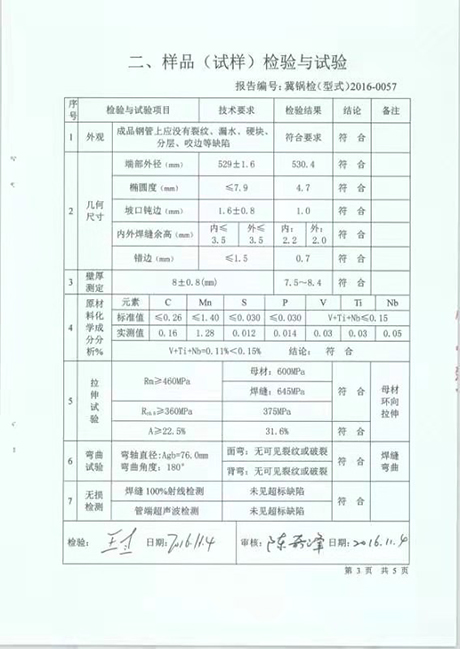 二、样品（试样）检验与试验
报告编号:冀锅检(型式)2016-0057
序号 检验与试验项目 技术要求 检验结果 结论 备注
1 外观 成品钢管上应没有裂纹、漏水、硬块、分层、咬边等缺陷 符合要求 符 合
2 几何尺寸 端部外径(mm) 529±1.6 530.4 符 合
椭圆度(mm) ≤7.9 4.7 符 合
坡口钝边(mm) 1.6±0.8 1.0 符 合
内外焊缝余高(mm) 内≤3.5 外≤3.5 内:2.2 外:2.0 符 合
错边(mm) ≤1.5 0.7 符 合
3 壁厚测定 8±0.8(mm) 7.5~8.4 符 合
4 原材料化学成分分析% 元素 C Mn S P V Ti Nb
标准值 ≤0.26 ≤1.40 ≤0.030 ≤0.030 V+Ti+Nb≤0.15
实测值 0.16 1.28 0.012 0.014 0.03 0.03 0.05
V+Ti+Nb=0.11%<0.15% 结论: 符 合
5 拉伸试验 Rm≥460MPa 母材:600MPa 符 合 母材环向拉伸
焊缝:645MPa
Rt0.5≥360MPa 375MPa
A≥22.5% 31.6%
6 弯曲试验 弯轴直径:Agb=76.0mm 弯曲角度:180° 面弯:无可见裂纹或破裂 符 合 焊缝弯曲
背弯:无可见裂纹或破裂
7 无损检测 焊缝100%射线检测 未见超标缺陷 符 合
管端超声波检测 未见超标缺陷
检验: 日期:2016.11.4 审核: 日期:2016.11.4
第 3 页 共 5 页